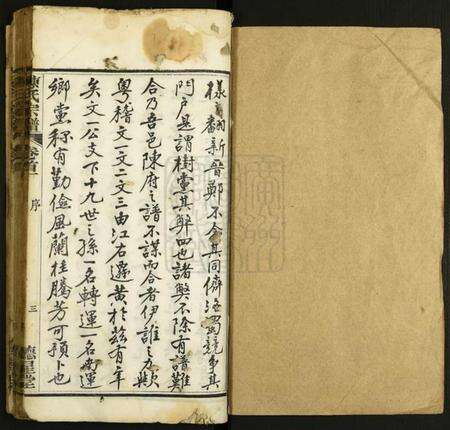 樣翻新晉鄭不令其同儕洛蜀競爭其
門戶是謂樹黨其弊四也諸弊不除有譜難
合乃吾邑陳府之譜不謀而合者伊誰之力歟
粵稽文一文二文三由江右遷黄於兹有年
矣文一公支下十九世之孫一名轉運一名南運
鄉黨稱有勤儉風蘭桂騰芳可預卜也
陳氏宗譜
卷首
序
三
德星堂